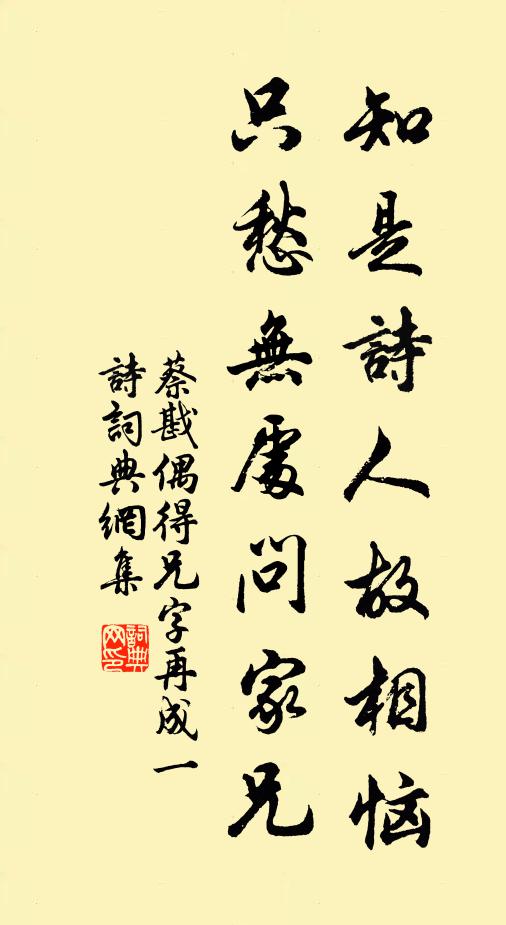 知是詩人故相恼
只愁無處問家兄
蔡戡偶得兄字再成一
詩詞典網集
詞典网印